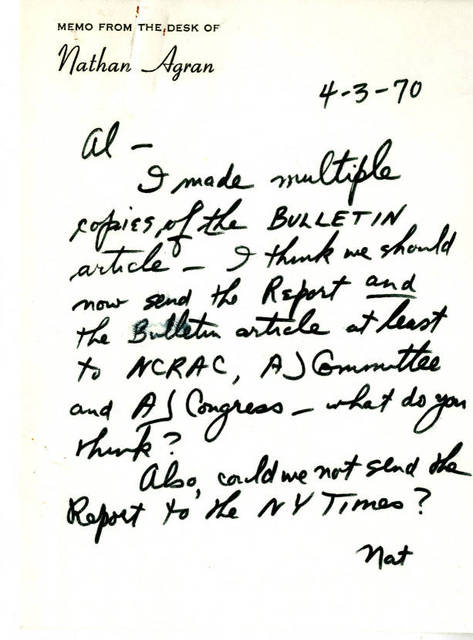 MEMO FROM THE DESK OF
Nathan Agran
4-3-70
Al —
I made multiple
copies of the BULLETIN
article — I think we should
now send the Report and
the Bulletin article at least
to NCRAC, AJ Committee
and AJ Congress — what do you
think?
Also, could we not send the
Report to the NY Times?
Nat